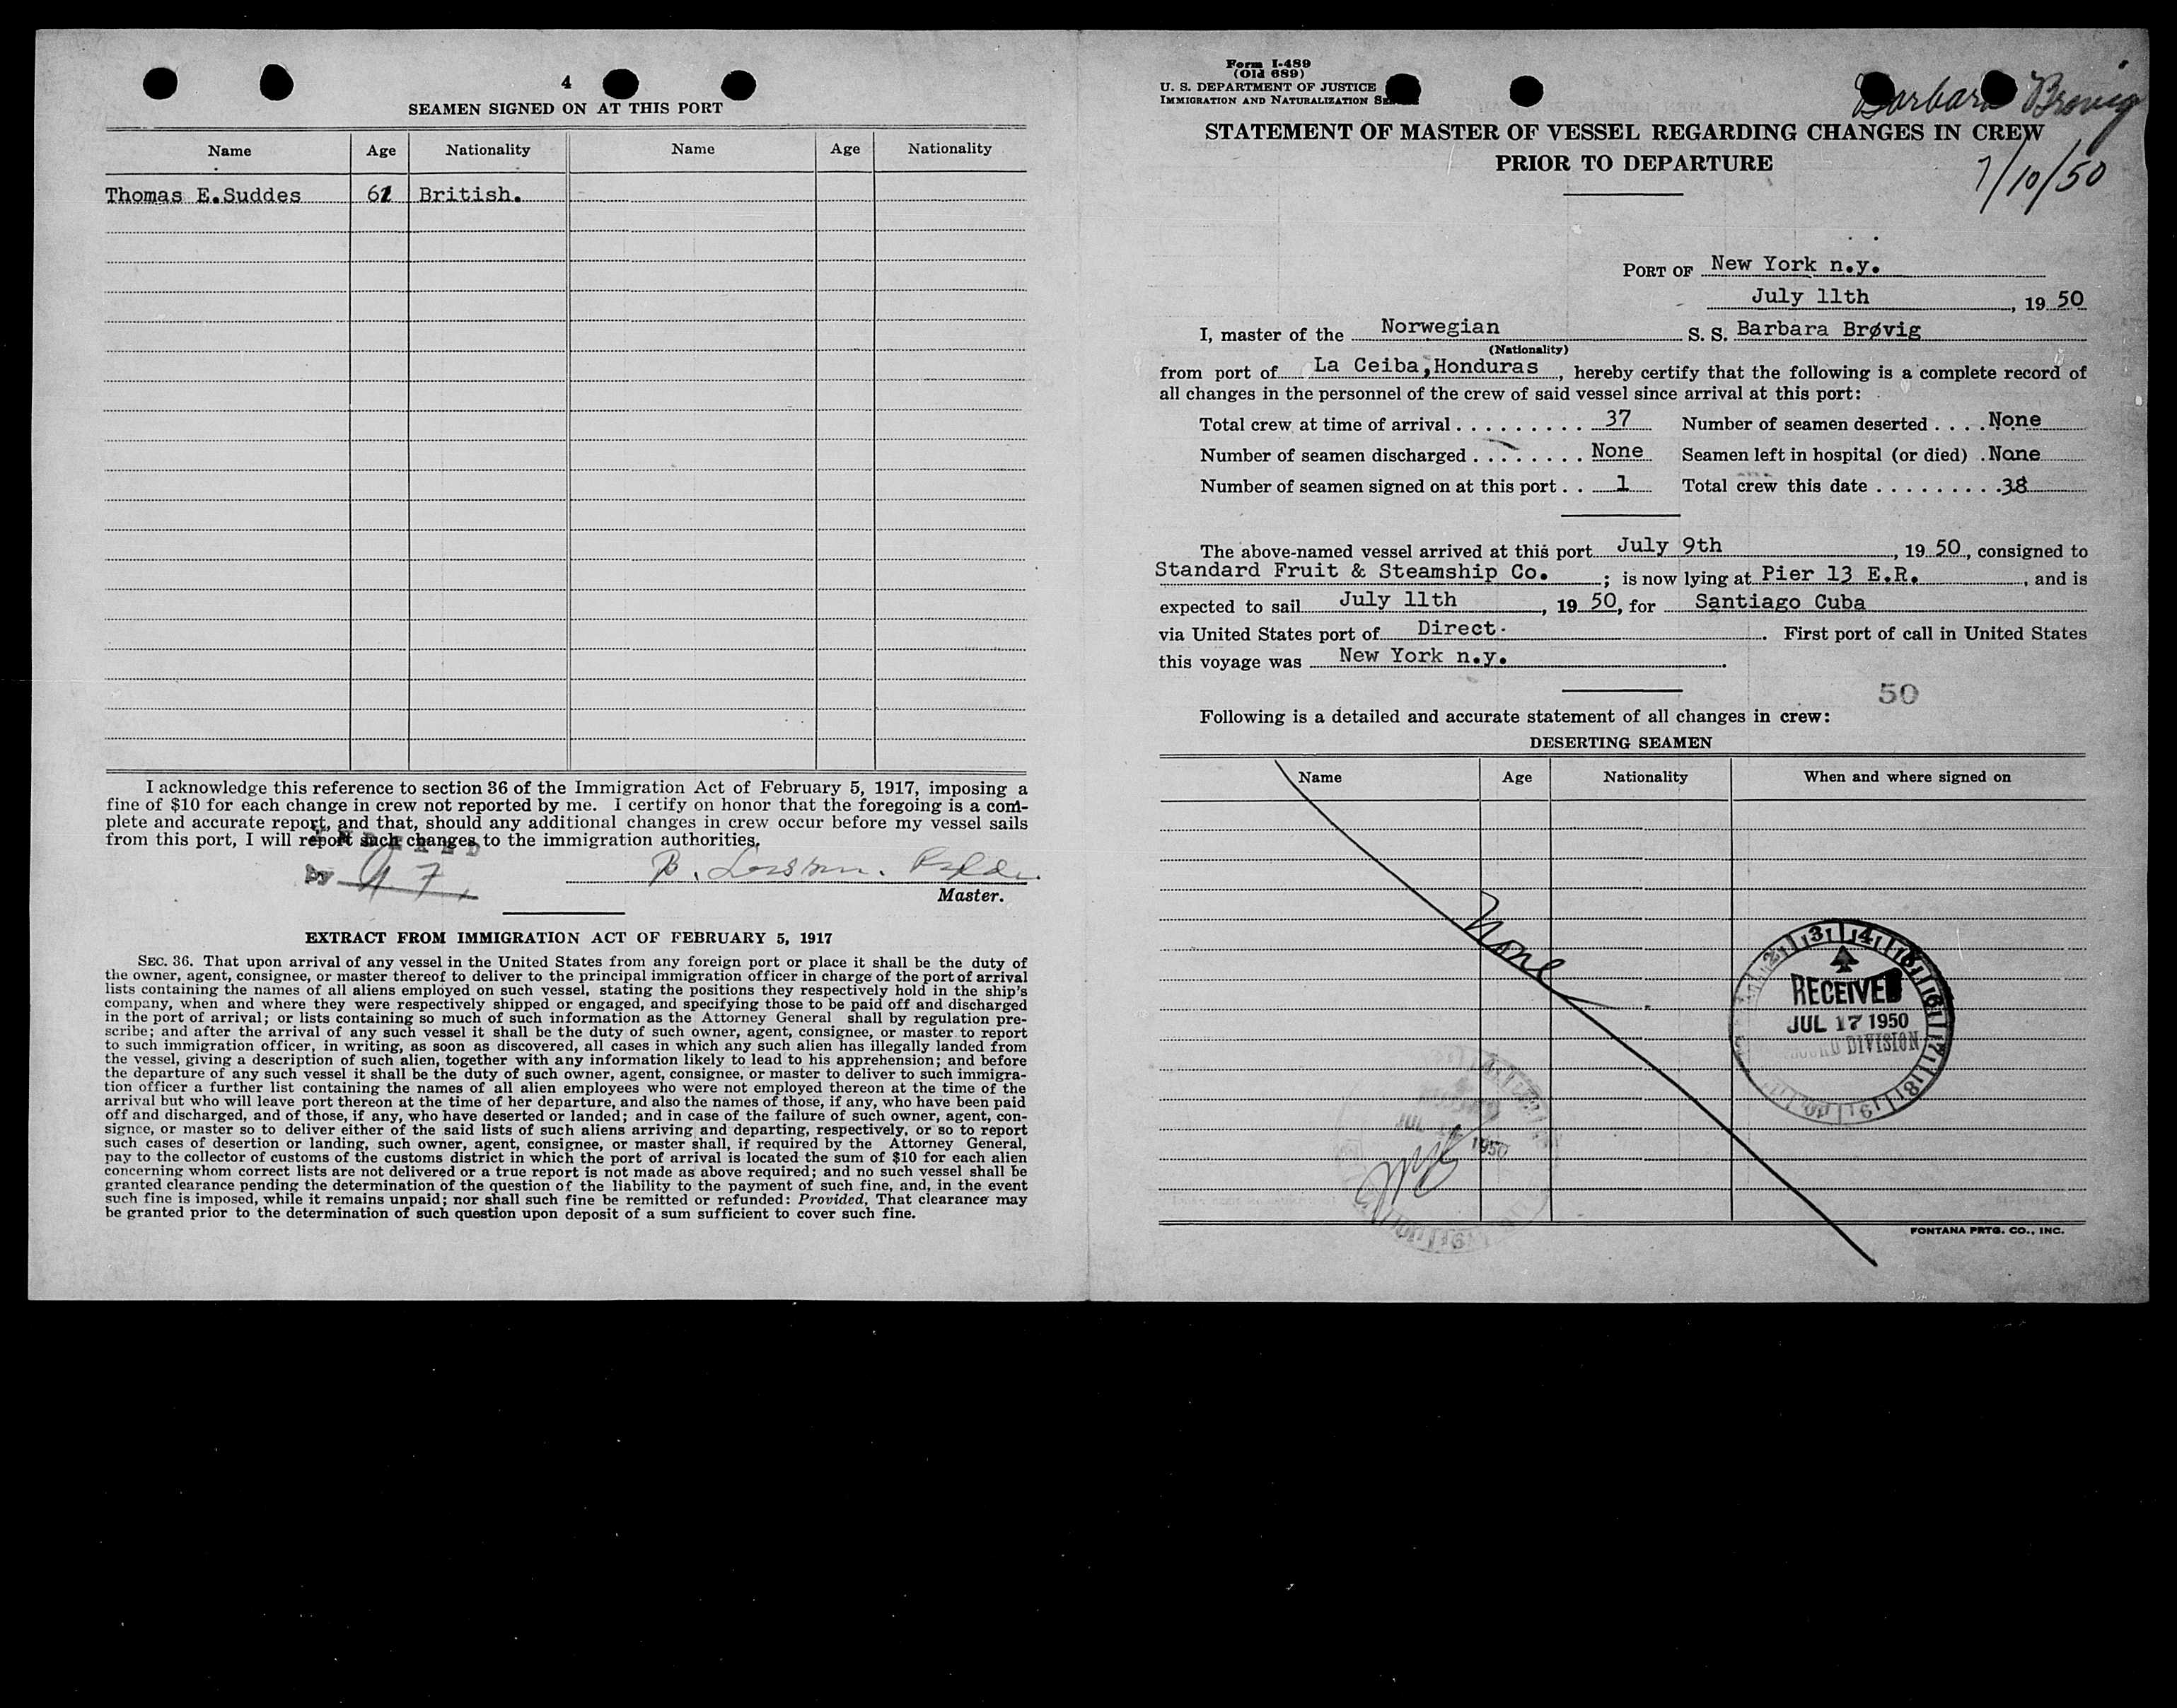 4
SEAMEN SIGNED ON AT THIS PORT
Name Age Nationality Name Age Nationality
Thomas E.Suddes 62 British.
I acknowledge this reference to section 36 of the Immigration Act of February 5, 1917, imposing a
fine of $10 for each change in crew not reported by me. I certify on honor that the foregoing is a com-
plete and accurate report, and that, should any additional changes in crew occur before my vessel sails
from this port, I will report such changes to the immigration authorities.
By
Master.
EXTRACT FROM IMMIGRATION ACT OF FEBRUARY 5, 1917
SEC. 36. That upon arrival of any vessel in the United States from any foreign port or place it shall be the duty of
the owner, agent, consignee, or master thereof to deliver to the principal immigration officer in charge of the port of arrival
lists containing the names of all aliens employed on such vessel, stating the positions they respectively hold in the ship's
company, when and where they were respectively shipped or engaged, and specifying those to be paid off and discharged
in the port of arrival; or lists containing so much of such information as the Attorney General shall by regulation pre-
scribe; and after the arrival of any such vessel it shall be the duty of such owner, agent, consignee, or master to report
to such immigration officer, in writing, as soon as discovered, all cases in which any such alien has illegally landed from
the vessel, giving a description of such alien, together with any information likely to lead to his apprehension; and before
the departure of any such vessel it shall be the duty of such owner, agent, consignee, or master to deliver to such immigra-
tion officer a further list containing the names of all alien employees who were not employed thereon at the time of the
arrival but who will leave port thereon at the time of her departure, and also the names of those, if any, who have been paid
off and discharged, and of those, if any, who have deserted or landed; and in case of the failure of such owner, agent, con-
signee, or master so to deliver either of the said lists of such aliens arriving and departing, respectively, or so to report
such cases of desertion or landing, such owner, agent, consignee, or master shall, if required by the Attorney General,
pay to the collector of customs of the customs district in which the port of arrival is located the sum of $10 for each alien
concerning whom correct lists are not delivered or a true report is not made as above required; and no such vessel shall be
granted clearance pending the determination of the question of the liability to the payment of such fine, and, in the event
such fine is imposed, while it remains unpaid; nor shall such fine be remitted or refunded: Provided, That clearance may
be granted prior to the determination of such question upon deposit of a sum sufficient to cover such fine.
Form I-489
(Old 689)
U. S. DEPARTMENT OF JUSTICE
IMMIGRATION AND NATURALIZATION
Barbara Brovig
7/10/50
STATEMENT OF MASTER OF VESSEL REGARDING CHANGES IN CREW
PRIOR TO DEPARTURE
PORT OF New York n.y.
July 11th, 19 50
I, master of the Norwegian S. S. Barbara Brøvig
(Nationality)
from port of La Ceiba,Honduras, hereby certify that the following is a complete record of
all changes in the personnel of the crew of said vessel since arrival at this port:
Total crew at time of arrival . . . . . . . . . 37 Number of seamen deserted . . . . None
Number of seamen discharged . . . . . . . . None Seamen left in hospital (or died) . None
Number of seamen signed on at this port . . 1 Total crew this date . . . . . . . . . 38
The above-named vessel arrived at this port July 9th, 19 50, consigned to
Standard Fruit & Steamship Co. ; is now lying at Pier 13 E.R., and is
expected to sail July 11th, 19 50, for Santiago Cuba
via United States port of Direct. First port of call in United States
this voyage was New York n.y.
50
Following is a detailed and accurate statement of all changes in crew:
DESERTING SEAMEN
Name Age Nationality When and where signed on
None
RECEIVED
JUL 17 1950
DIVISION
JUL 1950
FONTANA PRTG. CO., INC.